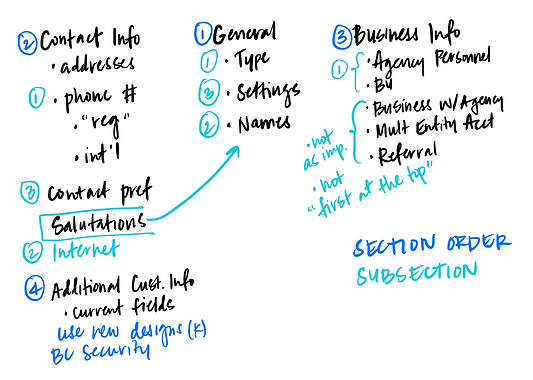 ② Contact Info
• addresses
① • phone #
• "reg"
• int'l
③ Contact pref
Salutations
② Internet
④ Additional Cust. Info
• current fields
use new designs (K)
BC security
① General
① • Type
③ • Settings
② • Names
③ Business Info
① • Agency Personnel
• BU
• Business w/Agency
• Mult Entity Acct
• Referral
• not
as imp.
• not
"first at the top"
SECTION ORDER
SUBSECTION